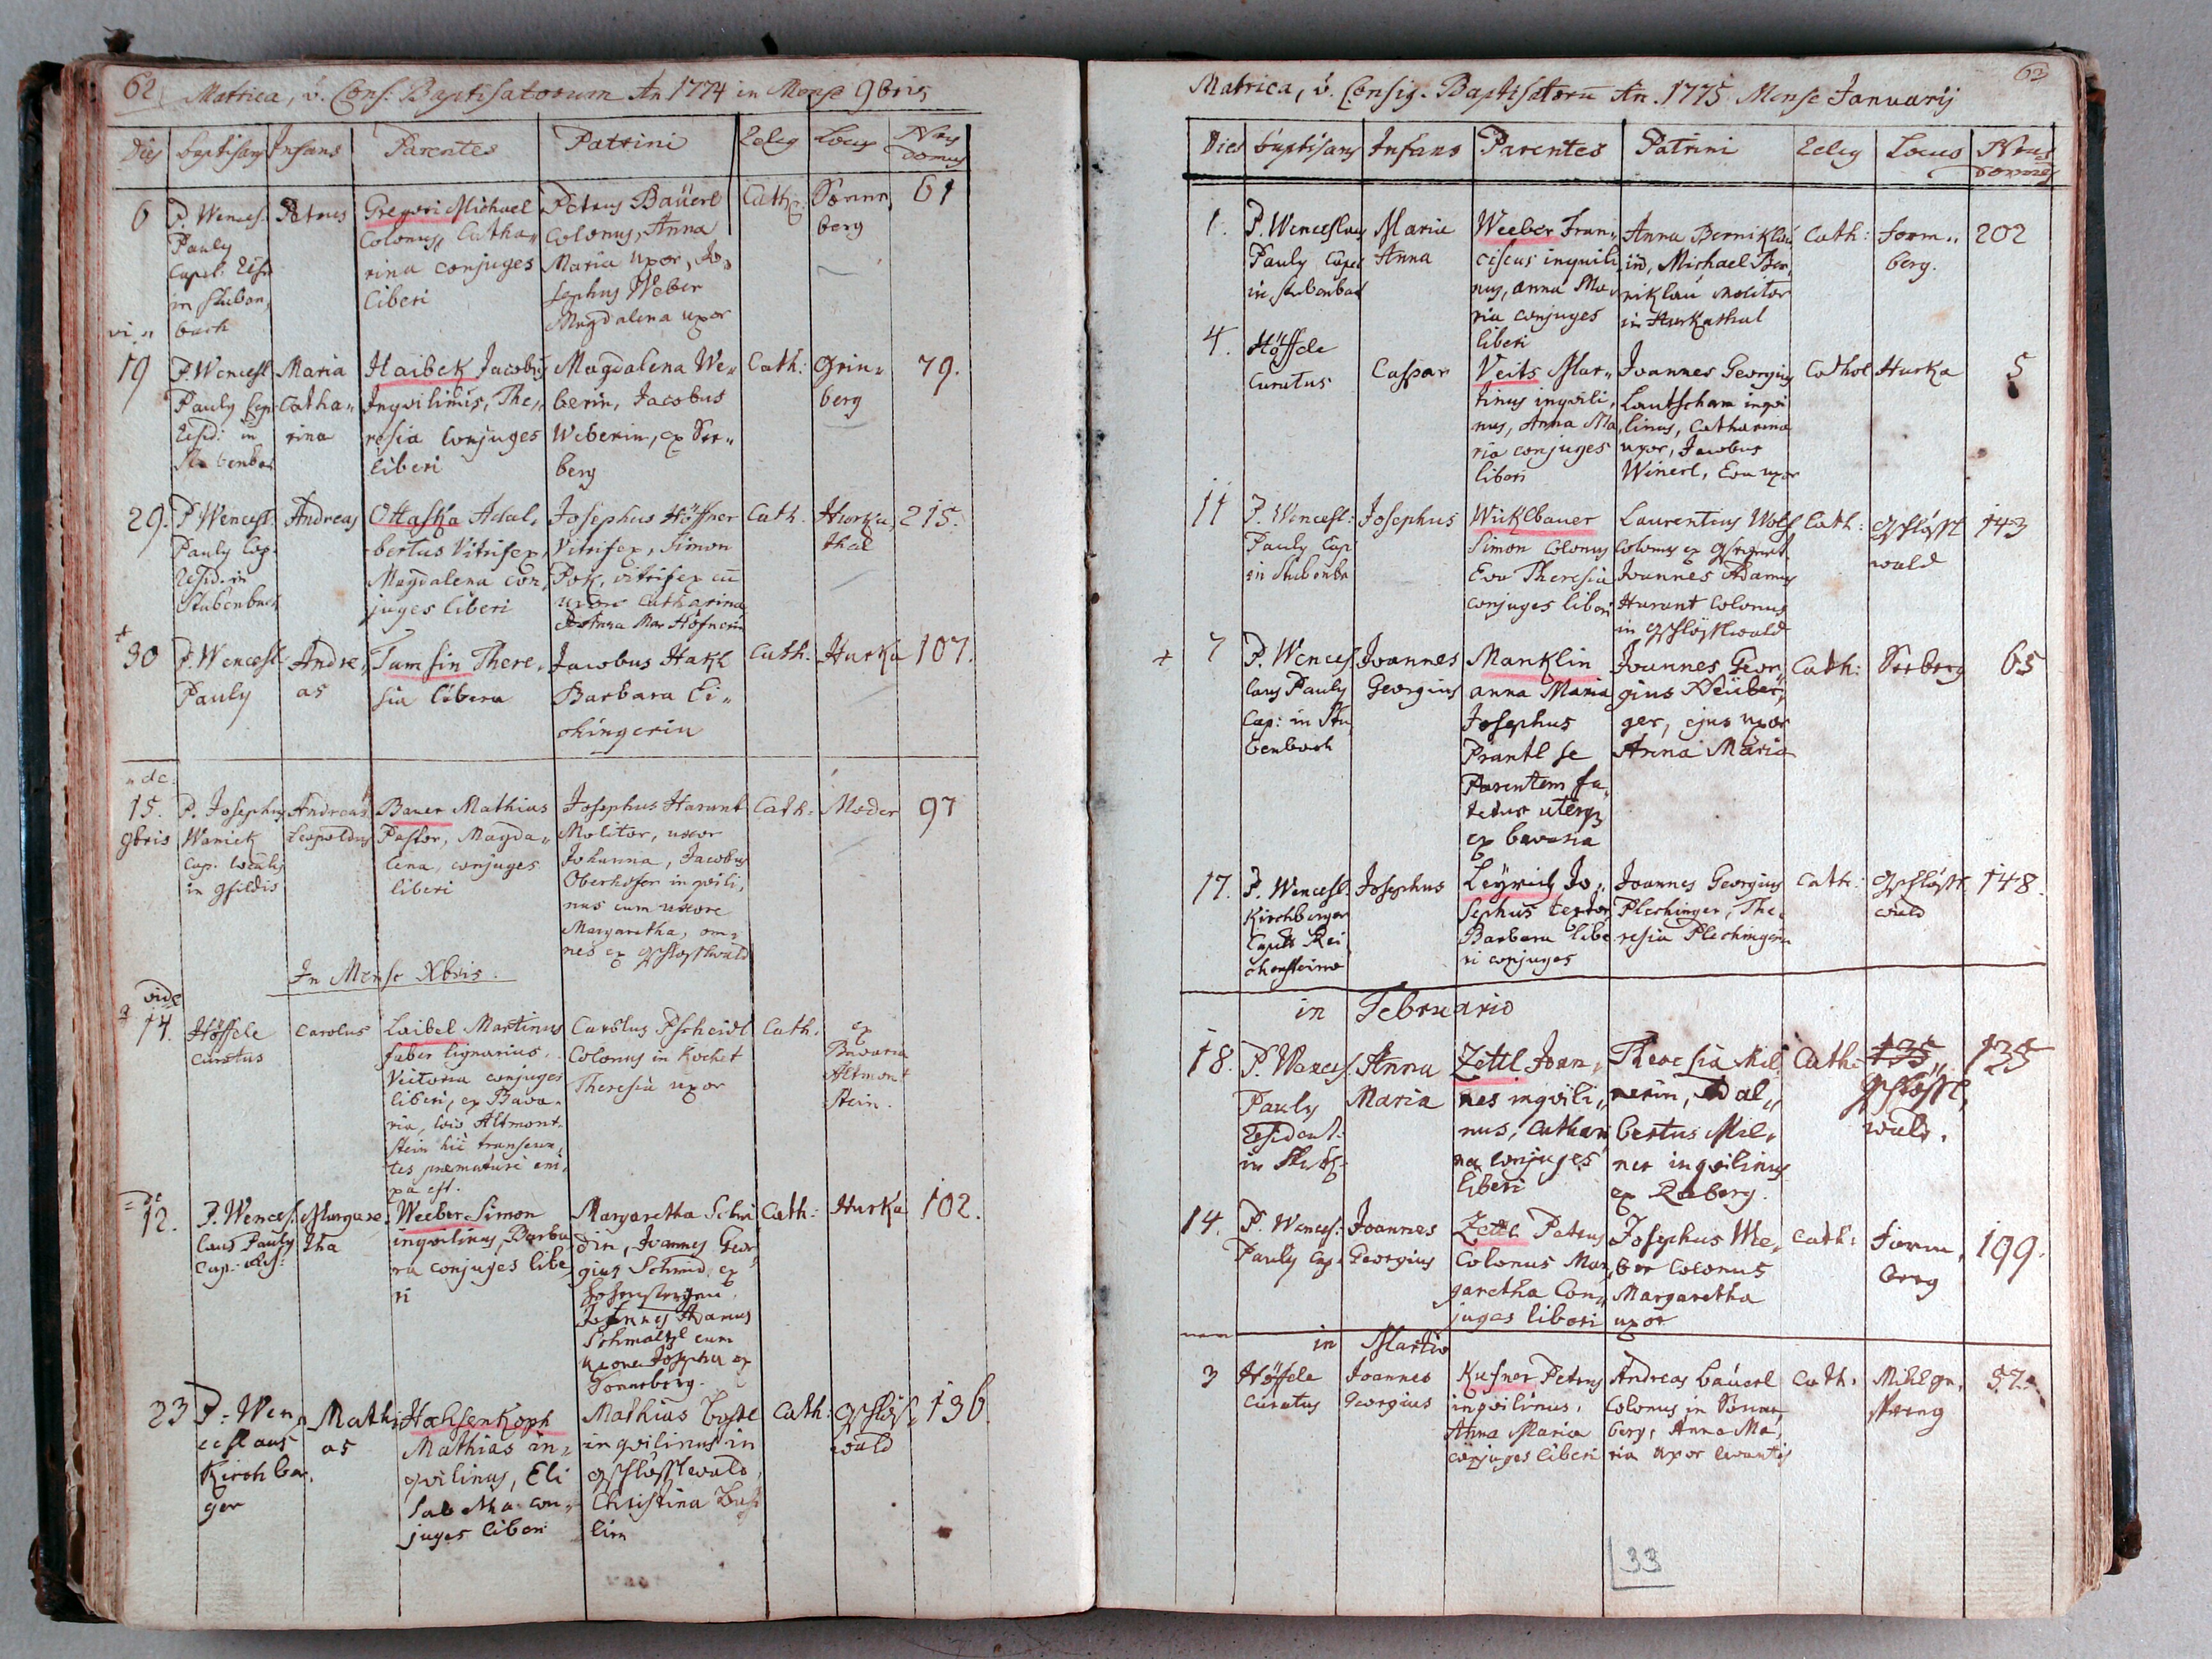 62 Matrica, v. Cons. Baptisatorum An 1774 in Mense 9bris
Dies baptisans Infans Parentes Patrini Relig Locus Nrus Domus
6 P. Wences. Pauly Capel. Resid in Stuben, bach
Petrus
Gregori Michael
Colonus, Catha,,
rina conjuges
liberi
Petrus Baüerl
Colonus, Anna
Maria uxor, Jo,
sephus Weber
Magdalena uxor
Cath
Sonnn,
berg
61
19
P. Wencesl
Pauly Cap.
Resid: in
Stubenbac
Maria
Catha,,
rina
Haibek Jacobus
Inqvilinus, The,,
resia conjuges
liberi
Magdalena We,,
berin, Jacobus
Weberin, ex See,,
berg
Cath:
Grin,,
berg
79.
29.
P Wencesl.
Pauly Cap.
Resid. in
Stubenbach
Andreas
Ottaska Adal,
bertus Vitrifex,
Magdalena con,
juges liberi
Josephus Höffner
Vitrifex, Simon
Pok, vitrifex cū
uxore Catharina
Anna Mar Höfnerin
Cath.
Hurka,
thal
215.
30
P. Wencesl
Pauly
Andre,
as
Tamsin There,
sia libera
Jacobus Hakl
Barbara Ei,,
chingerin
Cath.
Hurka
107.
15.
9bris
P. Josephus
Waniek
Cap. localis
in Gfildis
Andreas
Leopoldus
Bauer Mathias
Pastor, Magda,,
lena, conjuges
liberi
Josephus Harant
Molitor, uxor
Johanna, Jacobus
Oberhofer inqvili,
nus cum uxore
Margaretha, om,
nes ex Gschlosslwald
Cath:
Mader
97
In Mense Xbris.
vide
14.
Höffele
curatus
Carolus
Laibel Martinus
faber lignarius.
Victoria conjuges
liberi, ex Bava,
ria, loco Altmont,
stein hic transeun,
tes premature eni,
xa est.
Carolus Pscheidl
Colonus in Kochet
Theresia uxor
Cath.
ex
Bavaria
Altmon
stein.
12.
P. Wences.
laus Pauly
Cap.
Margare,
tha
Weeber Simon
inqvilinus, Barba
ra conjuges libe
ri
Margaretha Schmi
din, Joannes Geor
gius Schmid, ex
Joannes Adamus
Schmaltzl cum
uxore Josepha ex
Sonneberg.
Cath:
Hurka
102.
23
P. Wen,,
ceslaus
Kirchber,
ger
Mathi
as
Hachsenkoph
Mathias in,,
qvilinus, Eli
sabetha con,,
juges liberi
Mathias
inqvilinus in
Gschlösslwald,
Christina
Cath:
Gschlösl
wald
136.
63
Matrica, v. Consig. Baptisatorū An. 1775 Mense Januarij
Dies baptisans Infans Parentes Patrini Relig Locus Nrus Domus
1.
P. Wenceslaus
Pauly Capel
in Stubenbac
Maria
Anna
Weeber Fran,,
ciscus inqvili
nus, Anna Ma,
ria conjuges
liberi
Anna Berniklau
in, Michael Ber,
niklau molitor
in Hurkathal
Cath:
Form,,
berg.
202
4.
Höffele
curatus
Caspar
Veits Mar,,
tinus inqvili,
nus, Anna Ma,
ria conjuges
liberi
Joannes Georgius
Lautscham inqvi
linus, Catharina
uxor, Jacobus
Winerl, Eva uxor
Cathol
Hurka
5
11
P. Wencesl:
Pauly Cap
in Stubenba
Josephus
Wicklbauer
Simon Colonus
Eva Theresia
conjuges liberi
Laurentius Wolf
Colonus ex
Joannes Adamus
Harant Colonus
in Gschlösslwald
Cath:
Gschlössl
wald
143
7
P. Wences
laus Pauly
Cap: in Stu,
benbach
Joannes
Georgius
Manklin
Anna Maria
Josephus
Prantl se
Parentem fa,
tetur uterq
ex bavaria
Joannes Geor,
gius Neüber,
ger, ejus uxor
Anna Maria
Cath:
Seeberg
65
17.
P. Wencesl.
Kirchberger
Josephus
Leyrich Jo,,
sephus textor
Barbara libe
ri conjuges
Joannes Georgius
Plechinger, The,
resia Plechingerin
Cath:
Gschlössl
wald
148.
in Februario
18.
P. Wences.
Pauly
Resident.
in Stub.
Anna
Maria
Zettl Joan,,
nes inqvili,,
nus, Cathari
na conjuges
liberi
Theresia Mil,
nerin, Adal,,
bertus Mil,
ner inqvilinus
ex Reberg.
Cath:
135,,
Gschlössl,
wald.
135
14.
P. Wences:
Pauly Cap.
Joannes
Georgius
Zettl Petrus
Colonus Mar,
garetha Con,,
juges liberi
Josephus We,
ber Colonus
Margaretha
uxor
Cath:
Form,
berg
199.
in Martio
3
Höffele
Curatus
Joannes
Georgius
Kufner Petrus
inqvilinus,
Anna Maria
conjuges liberi
Andreas baüerl
Colonus in Sonne,
berg, Anna Ma,
ria uxor levantis
Cath:
57.
33